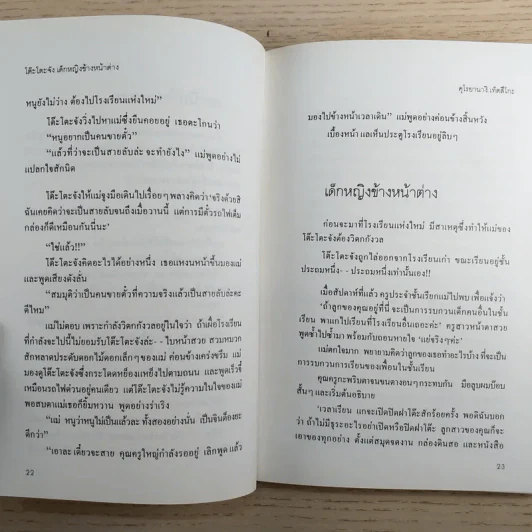 โต๊ะโตะจัง เด็กหญิงข้างหน้าต่าง
หนูยังไม่ว่าง ต้องไปโรงเรียนแห่งใหม่"
โต๊ะโตะจังวิ่งไปหาแม่ซึ่งยืนคอยอยู่ เธอตะโกนว่า
"หนูอยากเป็นคนขายตั๋ว"
"แล้วที่ว่าจะเป็นสายลับล่ะ จะทำยังไง" แม่พูดอย่างไม่
แปลกใจสักนิด
โต๊ะโตะจังให้แม่จูงมือเดินไปเรื่อยๆ พลางคิดว่า 'จริงด้วยสิ
ฉันเคยคิดว่าจะเป็นสายลับจนถึงเมื่อวานนี้ แต่การมีตั๋วรถไฟเต็ม
กล่องก็ดีเหมือนกันนี่นะ'
"ใช่แล้ว!!"
โต๊ะโตะจังคิดอะไรได้อย่างหนึ่ง เธอแหงนหน้าขึ้นมองแม่
และพูดเสียงดังลั่น
"สมมุติว่าเป็นคนขายตั๋วที่ความจริงแล้วเป็นสายลับล่ะคะ
ดีไหม"
แม่ไม่ตอบ เพราะกำลังวิตกกังวลอยู่ในใจว่า ถ้าเผื่อโรงเรียน
ที่กำลังจะไปนี้ไม่ยอมรับโต๊ะโตะจังล่ะ- - ใบหน้าสวย สวมหมวก
สักหลาดประดับดอกไม้ดอกเล็กๆ ของแม่ ค่อนข้างเคร่งขรึม แม่
มองดูโต๊ะโตะจังซึ่งกระโดดหย็องแหย็งไปตามถนน และพูดเร็วจี๋
เหมือนรถไฟด่วนอยู่คนเดียว แต่โต๊ะโตะจังไม่รู้ความในใจของแม่
พอสบตาแม่เธอก็ยิ้มหวาน พูดอย่างร่าเริง
"แม่ หนูว่าหนูไม่เป็นแล้วละ ทั้งสองอย่างนั่น เป็นจินตองยะ
ดีกว่า"
"เอาละ เดี๋ยวจะสาย คุณครูใหญ่กำลังรออยู่ เลิกพูด แล้ว
22
คุโรยานางิ เท็ตสึโกะ
มองไปข้างหน้าเวลาเดิน" แม่พูดอย่างค่อนข้างสิ้นหวัง
เบื้องหน้า แลเห็นประตูโรงเรียนอยู่ลิบๆ
เด็กหญิงข้างหน้าต่าง
ก่อนจะมาที่โรงเรียนแห่งใหม่ มีสาเหตุซึ่งทำให้แม่ของ
โต๊ะโตะจังต้องวิตกกังวล
โต๊ะโตะจังถูกไล่ออกจากโรงเรียนเก่า ขณะเรียนอยู่ชั้น
ประถมหนึ่ง- - ประถมหนึ่งเท่านั้นเอง!!
เมื่อสัปดาห์ที่แล้ว ครูประจำชั้นเรียกแม่ไปพบ เพื่อแจ้งว่า
'ถ้าลูกของคุณอยู่ที่นี่ จะเป็นการรบกวนเด็กคนอื่นในชั้น
เรียน พาแกไปเรียนที่โรงเรียนอื่นเถอะค่ะ' ครูสาวหน้าตาสวย
พูดซ้ำไปซ้ำมา พร้อมกับถอนหายใจ 'แย่จริงๆค่ะ'
แม่ตกใจมาก พยายามคิดว่าลูกของเธอทำอะไรบ้าง ที่จะเป็น
การรบกวนการเรียนของเพื่อนในชั้นเรียน
คุณครูกะพริบตาจนขนตางอนๆกระทบกัน มือลูบผมบ๊อบ
สั้นๆ และเริ่มต้นอธิบาย
'เวลาเรียน แกจะเปิดปิดฝาโต๊ะสักร้อยครั้ง พอดิฉันบอก
ว่า ถ้าไม่มีธุระอะไรอย่าเปิดหรือปิดฝาโต๊ะ ลูกสาวของคุณก็จะ
เอาของทุกอย่าง ตั้งแต่สมุดจดงาน กล่องดินสอ และหนังสือ
23